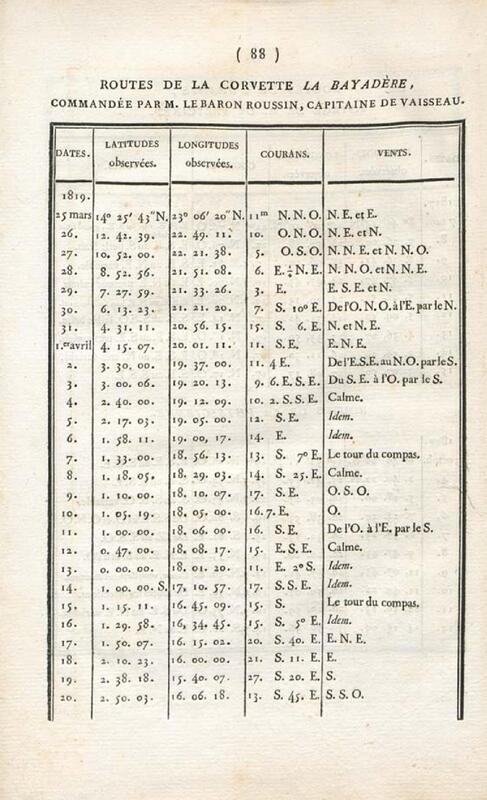 ( 88 )
ROUTES DE LA CORVETTE LA BAYADÈRE,
COMMANDÉE PAR M. LE BARON ROUSSIN, CAPITAINE DE VAISSEAU.
DATES. LATITUDES observées. LONGITUDES observées. COURANS. VENTS.
1819.
25 mars 14° 25' 43" N. 23° 06' 20" N. 11m N. N. O. N. E. et E.
26. 12. 42. 39. 22. 49. 11. 10. O. N. O. N. E. et N.
27. 10. 52. 00. 22. 21. 38. 5. O. S. O. N. N. E. et N. N. O.
28. 8. 52. 56. 21. 51. 08. 6. E. ¼ N. E. N. N. O. et N. N. E.
29. 7. 27. 59. 21. 33. 26. 3. E. E. S. E. et N.
30. 6. 13. 23. 21. 21. 20. 7. S. 10° E. De l'O. N. O. à l'E. par le N.
31. 4. 31. 11. 20. 56. 15. 15. S. 6. E. N. et N. E.
1.er avril 4. 15. 07. 20. 01. 11. 11. S. E. E. N. E.
2. 3. 30. 00. 19. 37. 00. 11. 4 E. De l'E. S. E. au N. O. par le S.
3. 3. 00. 06. 19. 20. 13. 9. 6. E. S. E. Du S. E. à l'O. par le S.
4. 2. 40. 00. 19. 12. 09. 10. 2. S. S. E. Calme.
5. 2. 17. 03. 19. 05. 00. 12. S. E. Idem.
6. 1. 58. 11. 19. 00, 17. 14. E. Idem.
7. 1. 33. 00. 18. 56. 13. 13. S. 7° E. Le tour du compas.
8. 1. 18. 05. 18. 29. 03. 14. S. 25. E. Calme.
9. 1. 10. 00. 18. 10. 07. 17. S. E. O. S. O.
10. 1. 05. 19. 18. 05. 00. 16. 7. E. O.
11. 1. 00. 00. 18. 06. 00. 16. S. E. De l'O. à l'E. par le S.
12. 0. 47. 00. 18. 08. 17. 15. E. S. E. Calme.
13. 0. 00. 00. 18. 01. 20. 11. E. 2° S. Idem.
14. 1. 00. 00. S. 17, 10. 57. 17. S. S. E. Idem.
15. 1. 15. 11. 16. 45. 09. 15. S. Le tour du compas.
16. 1. 29. 58. 16, 34. 45. 15. S. 5° E. Idem.
17. 1. 50. 07. 16. 15. 02. 20. S. 40. E. E. N. E.
18. 2. 10. 23. 16. 00. 00. 21. S. 11. E. E.
19. 2. 38. 18. 15. 40. 07. 27. S. 20. E. S.
20. 2. 50. 03. 16. 06. 18. 13. S. 45. E. S. S. O.